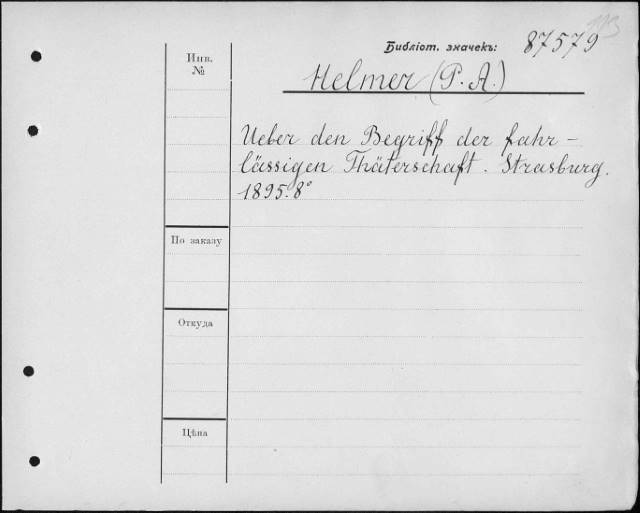 Библіот. значекъ: 87579
Инв.
№
Helmer (P. A.)
Ueber den Begriff der fahr-
lässigen Thäterschaft. Strasburg.
1895. 8°
По заказу
Откуда
Цѣна